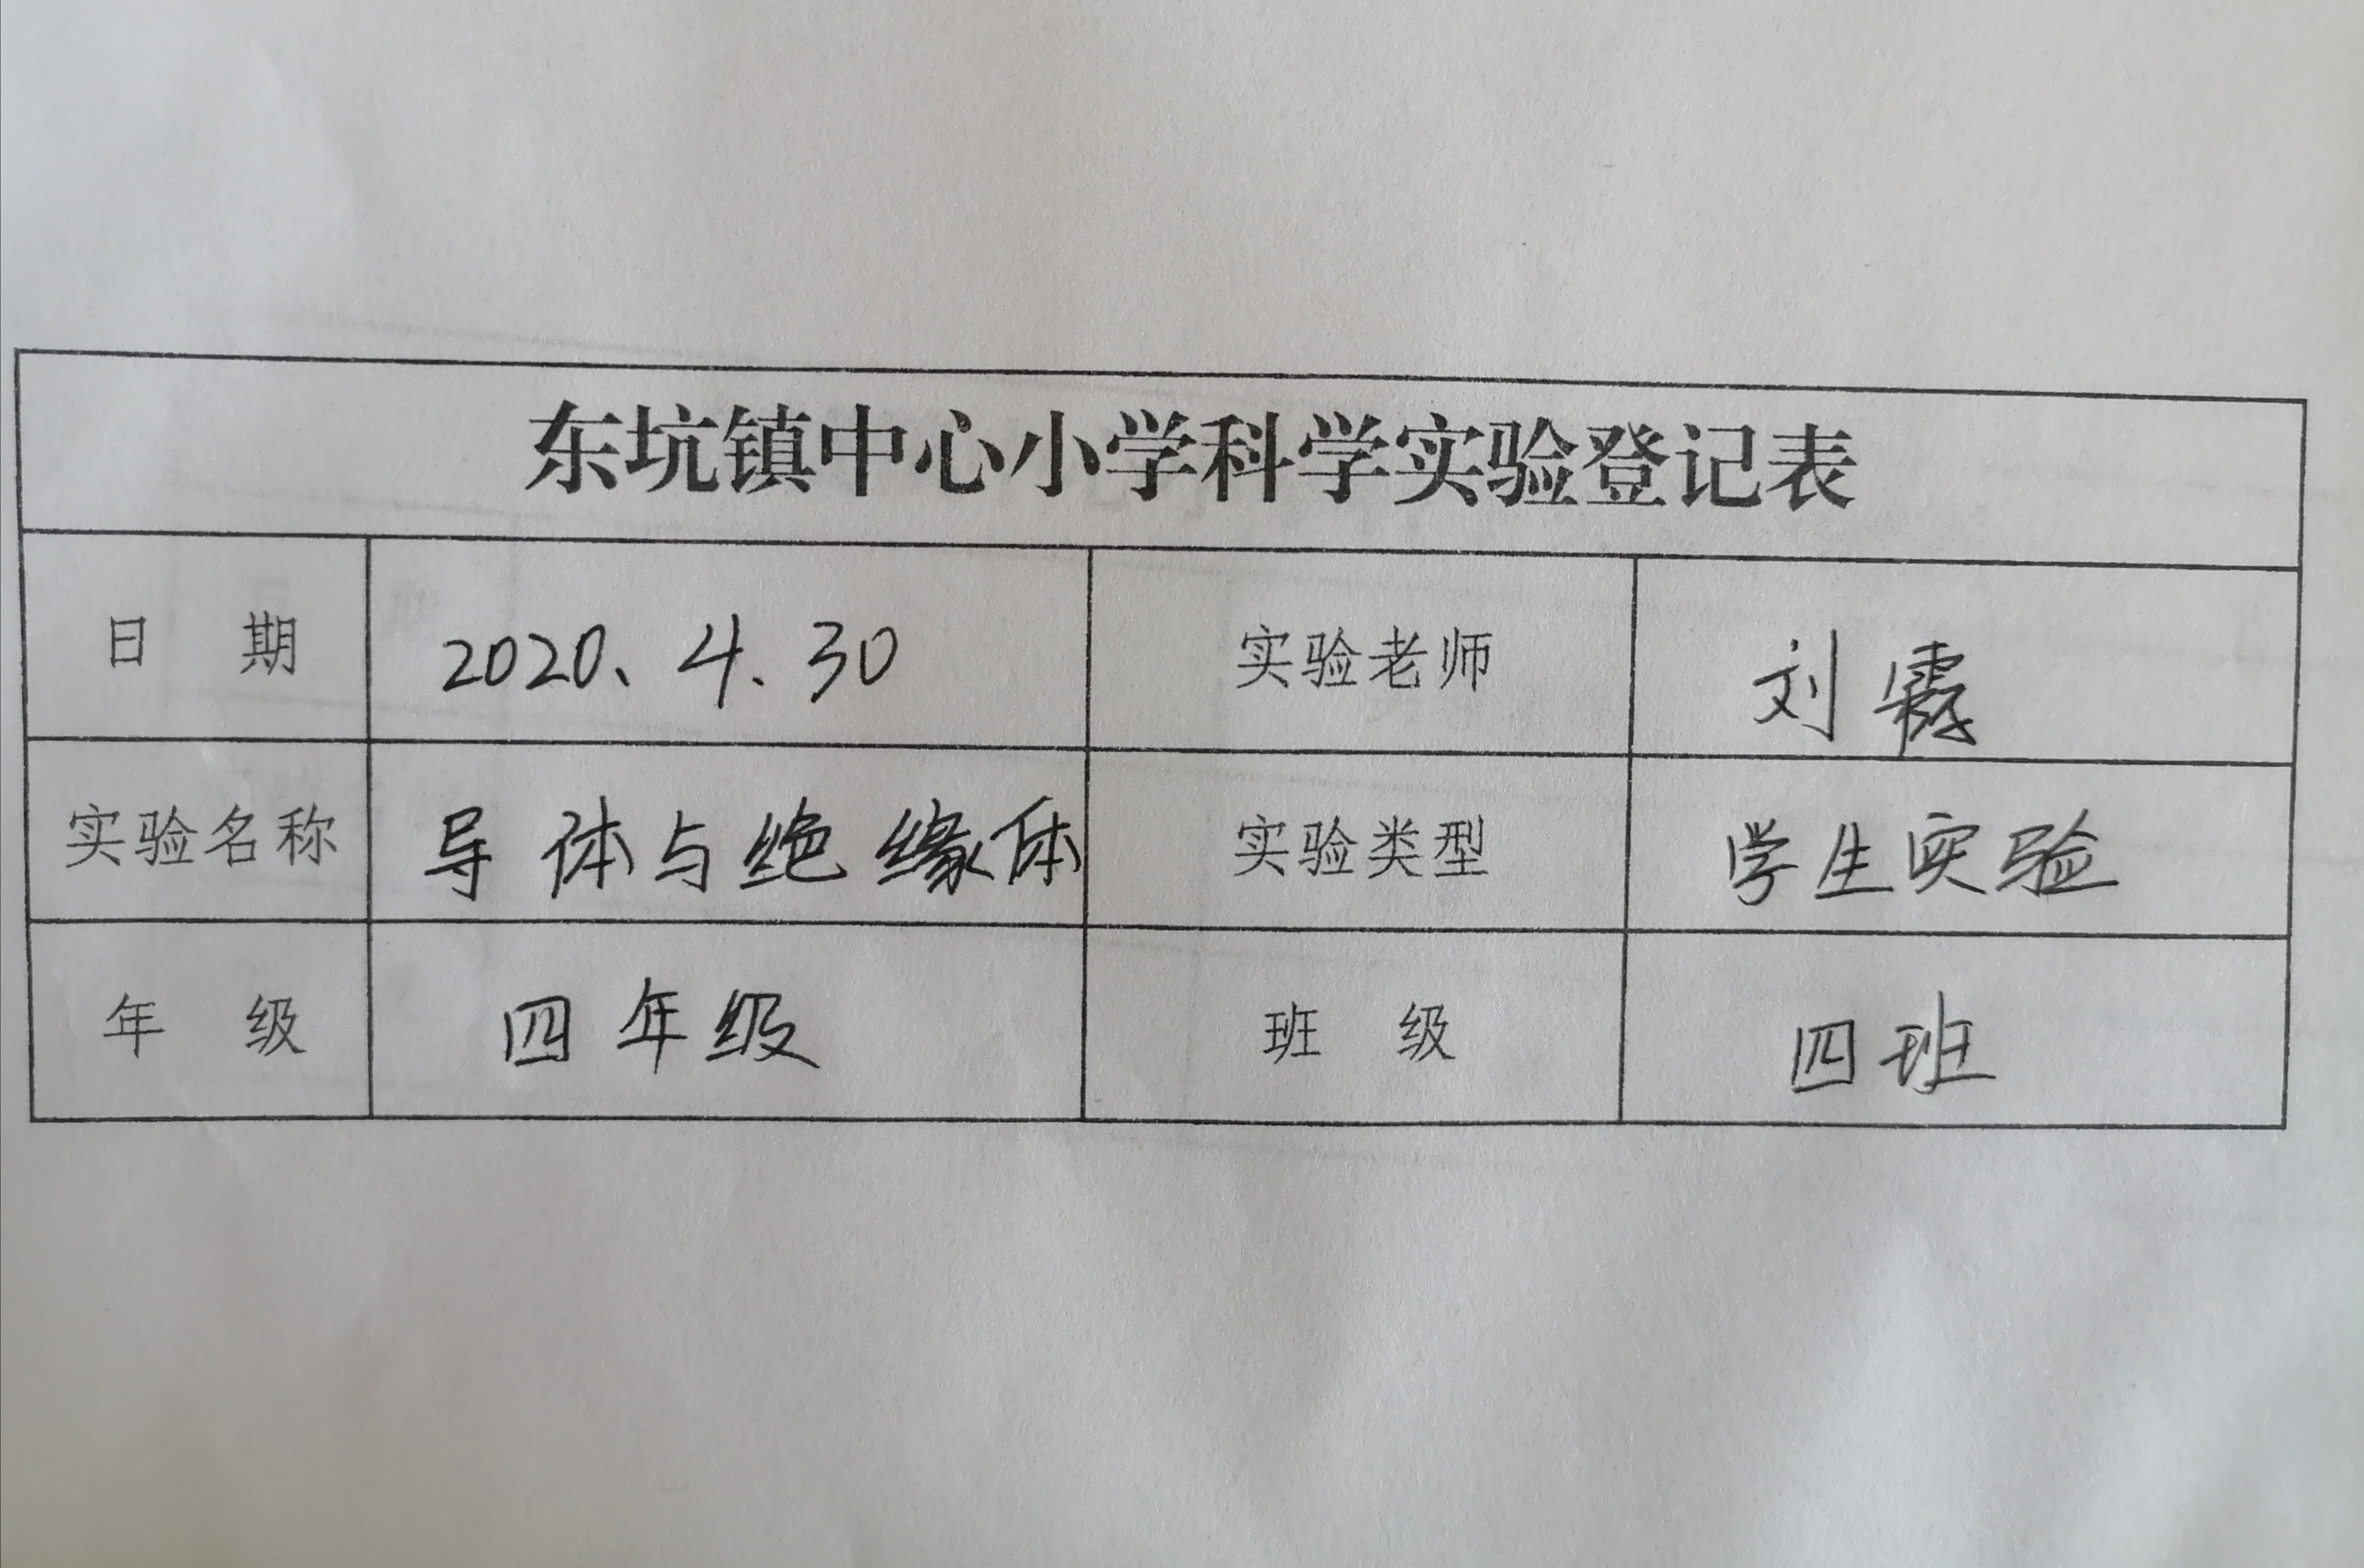 东坑镇中心小学科学实验登记表
日 期 2020、4、30 实验老师 刘霞
实验名称 导体与绝缘体 实验类型 学生实验
年 级 四年级 班 级 四班